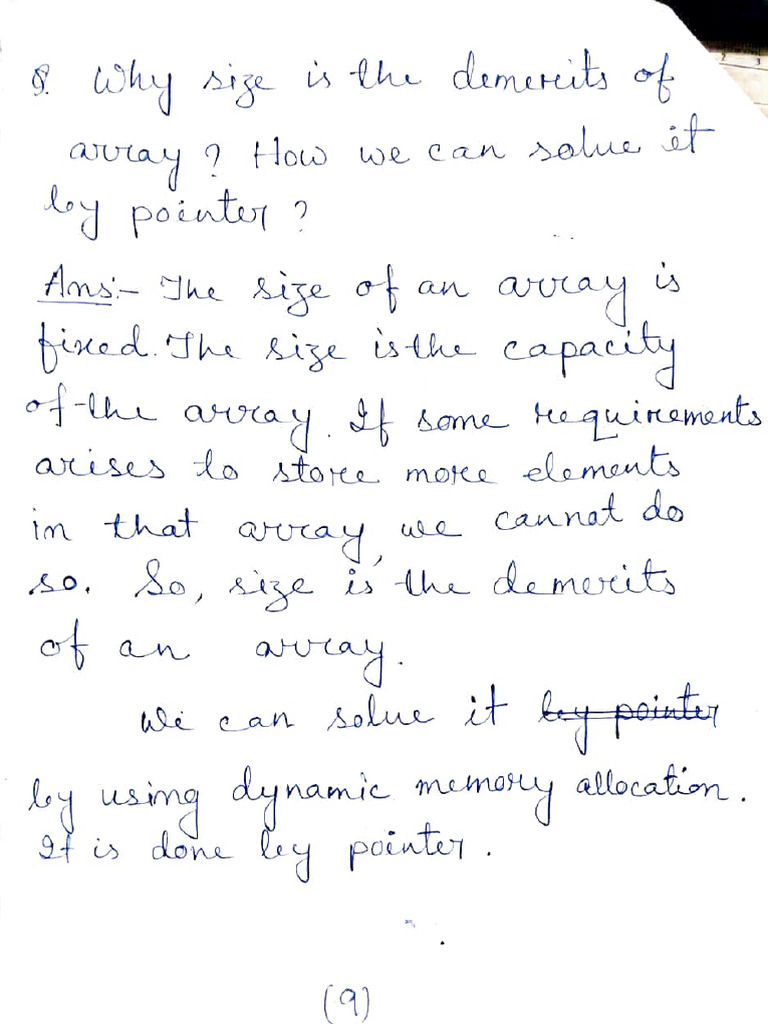 Q. Why size is the demerits of
array? How we can solve it
by pointer?
Ans:- The size of an array is
fixed. The size is the capacity
of the array. If some requirements
arises to store more elements
in that array, we cannot do
so. So, size is the demerits
of an array.
We can solve it by pointer
by using dynamic memory allocation.
It is done by pointer.
(9)